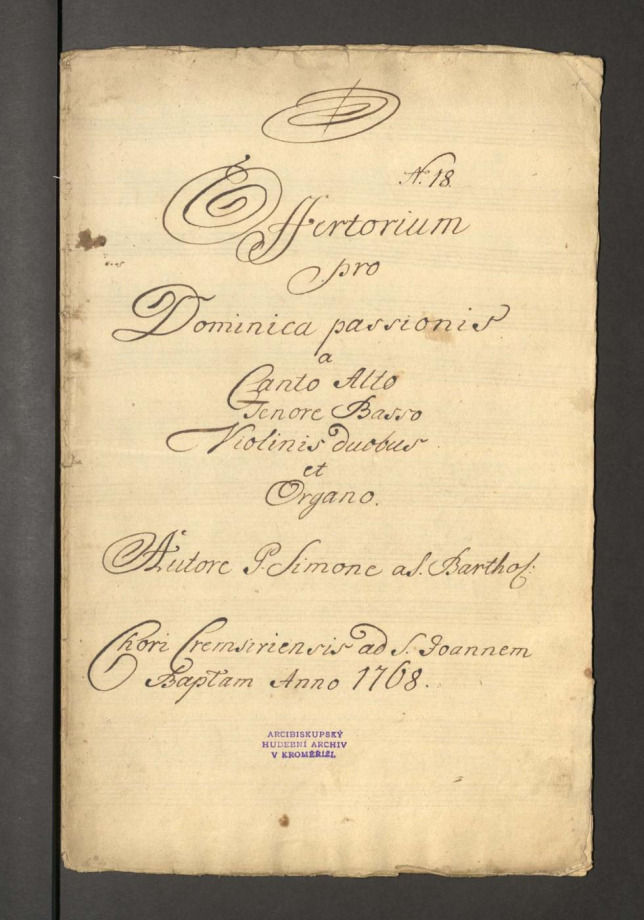 No. 18.
Offertorium
pro
Dominica passionis
a
Canto Alto
Tenore Basso
Violinis duobus
et
Organo.
Autore P. Simone a S. Barthol:
Chori Cremsiriensis ad S. Joannem
Baptam Anno 1768.
ARCIBISKUPSKÝ
HUDEBNÍ ARCHIV
V KROMĚŘÍŽI.